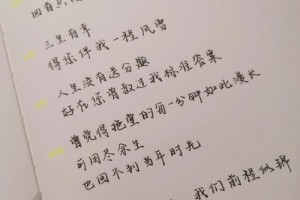 三生有幸
得你伴我一程风雪
人生没有送分题
好在你曾救过我标准答案
曾觉得拖堂的每一分钟如此漫长
可用尽余生
也回不到当年时光
我们前程似锦